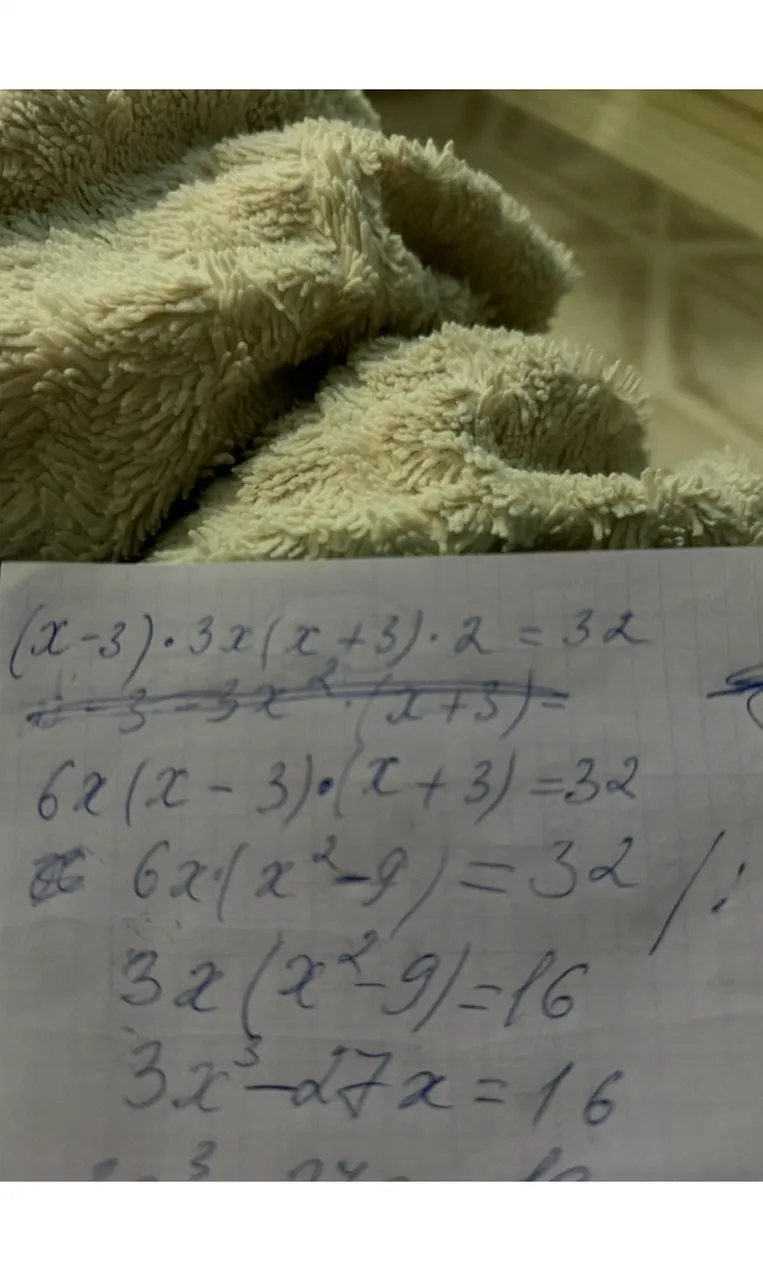 (x-3)·3x(x+3)·2=32
6x(x-3)·(x+3)=32
6x·(x²-9)=32 /:
3x(x²-9)=16
3x³-27x=16